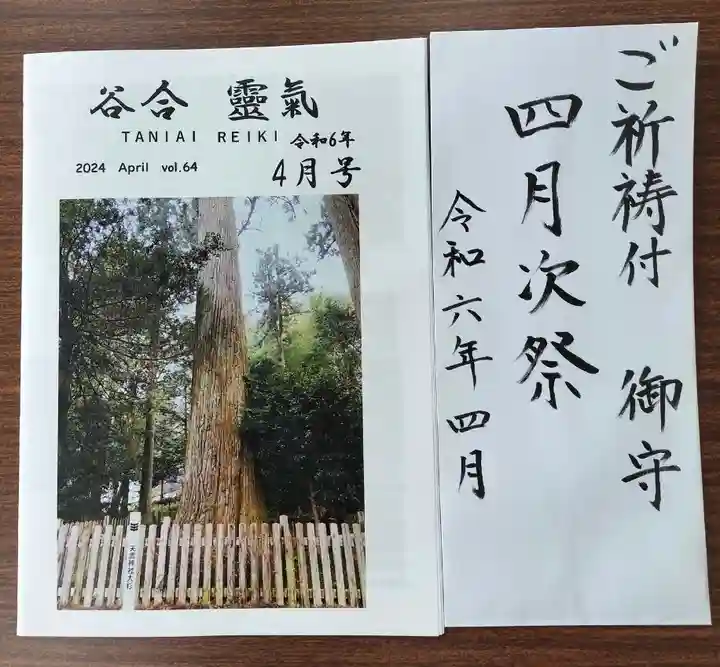 谷合 靈氣
TANIAI REIKI
令和6年
2024 April vol.64
4月号
天志神社大杉
ご祈祷付 御守
四月次祭
令和六年四月